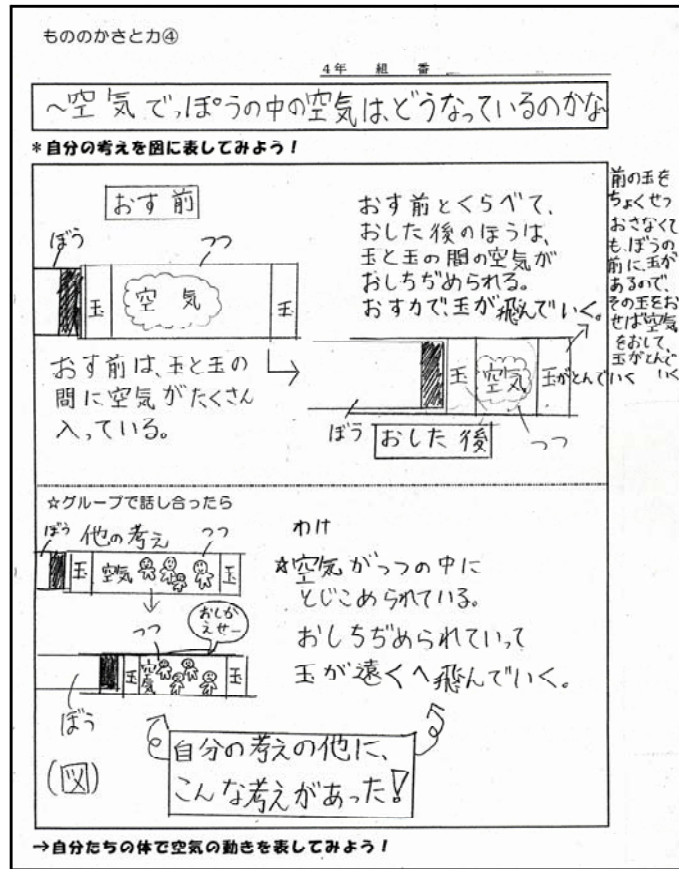 もののかさと力④
4年 組 番
～空気でっぽうの中の空気は、どうなっているのかな
＊自分の考えを図に表してみよう！
おす前
ぼう
つつ
玉
空気
玉
おす前は、玉と玉の
間に空気がたくさん
入っている。
おす前とくらべて、
おした後のほうは、
玉と玉の間の空気が
おしちぢめられる。
おす力で、玉が飛んでいく。
玉
空気
玉がとんでいく
ぼう
おした後
つつ
前の玉を
ちょくせつ
おさなくて
も、ぼうの
前に、玉が
あるので、
その玉をお
せば空気
をおして、
玉がとんで
いく
☆グループで話し合ったら
ぼう
他の考え
つつ
玉
空気
玉
おしか
えせー
つつ
玉
空気
玉
ぼう
(図)
わけ
☆空気がつつの中に
とじこめられている。
おしちぢめられていって
玉が遠くへ飛んでいく。
自分の考えの他に、
こんな考えがあった！
→自分たちの体で空気の動きを表してみよう！